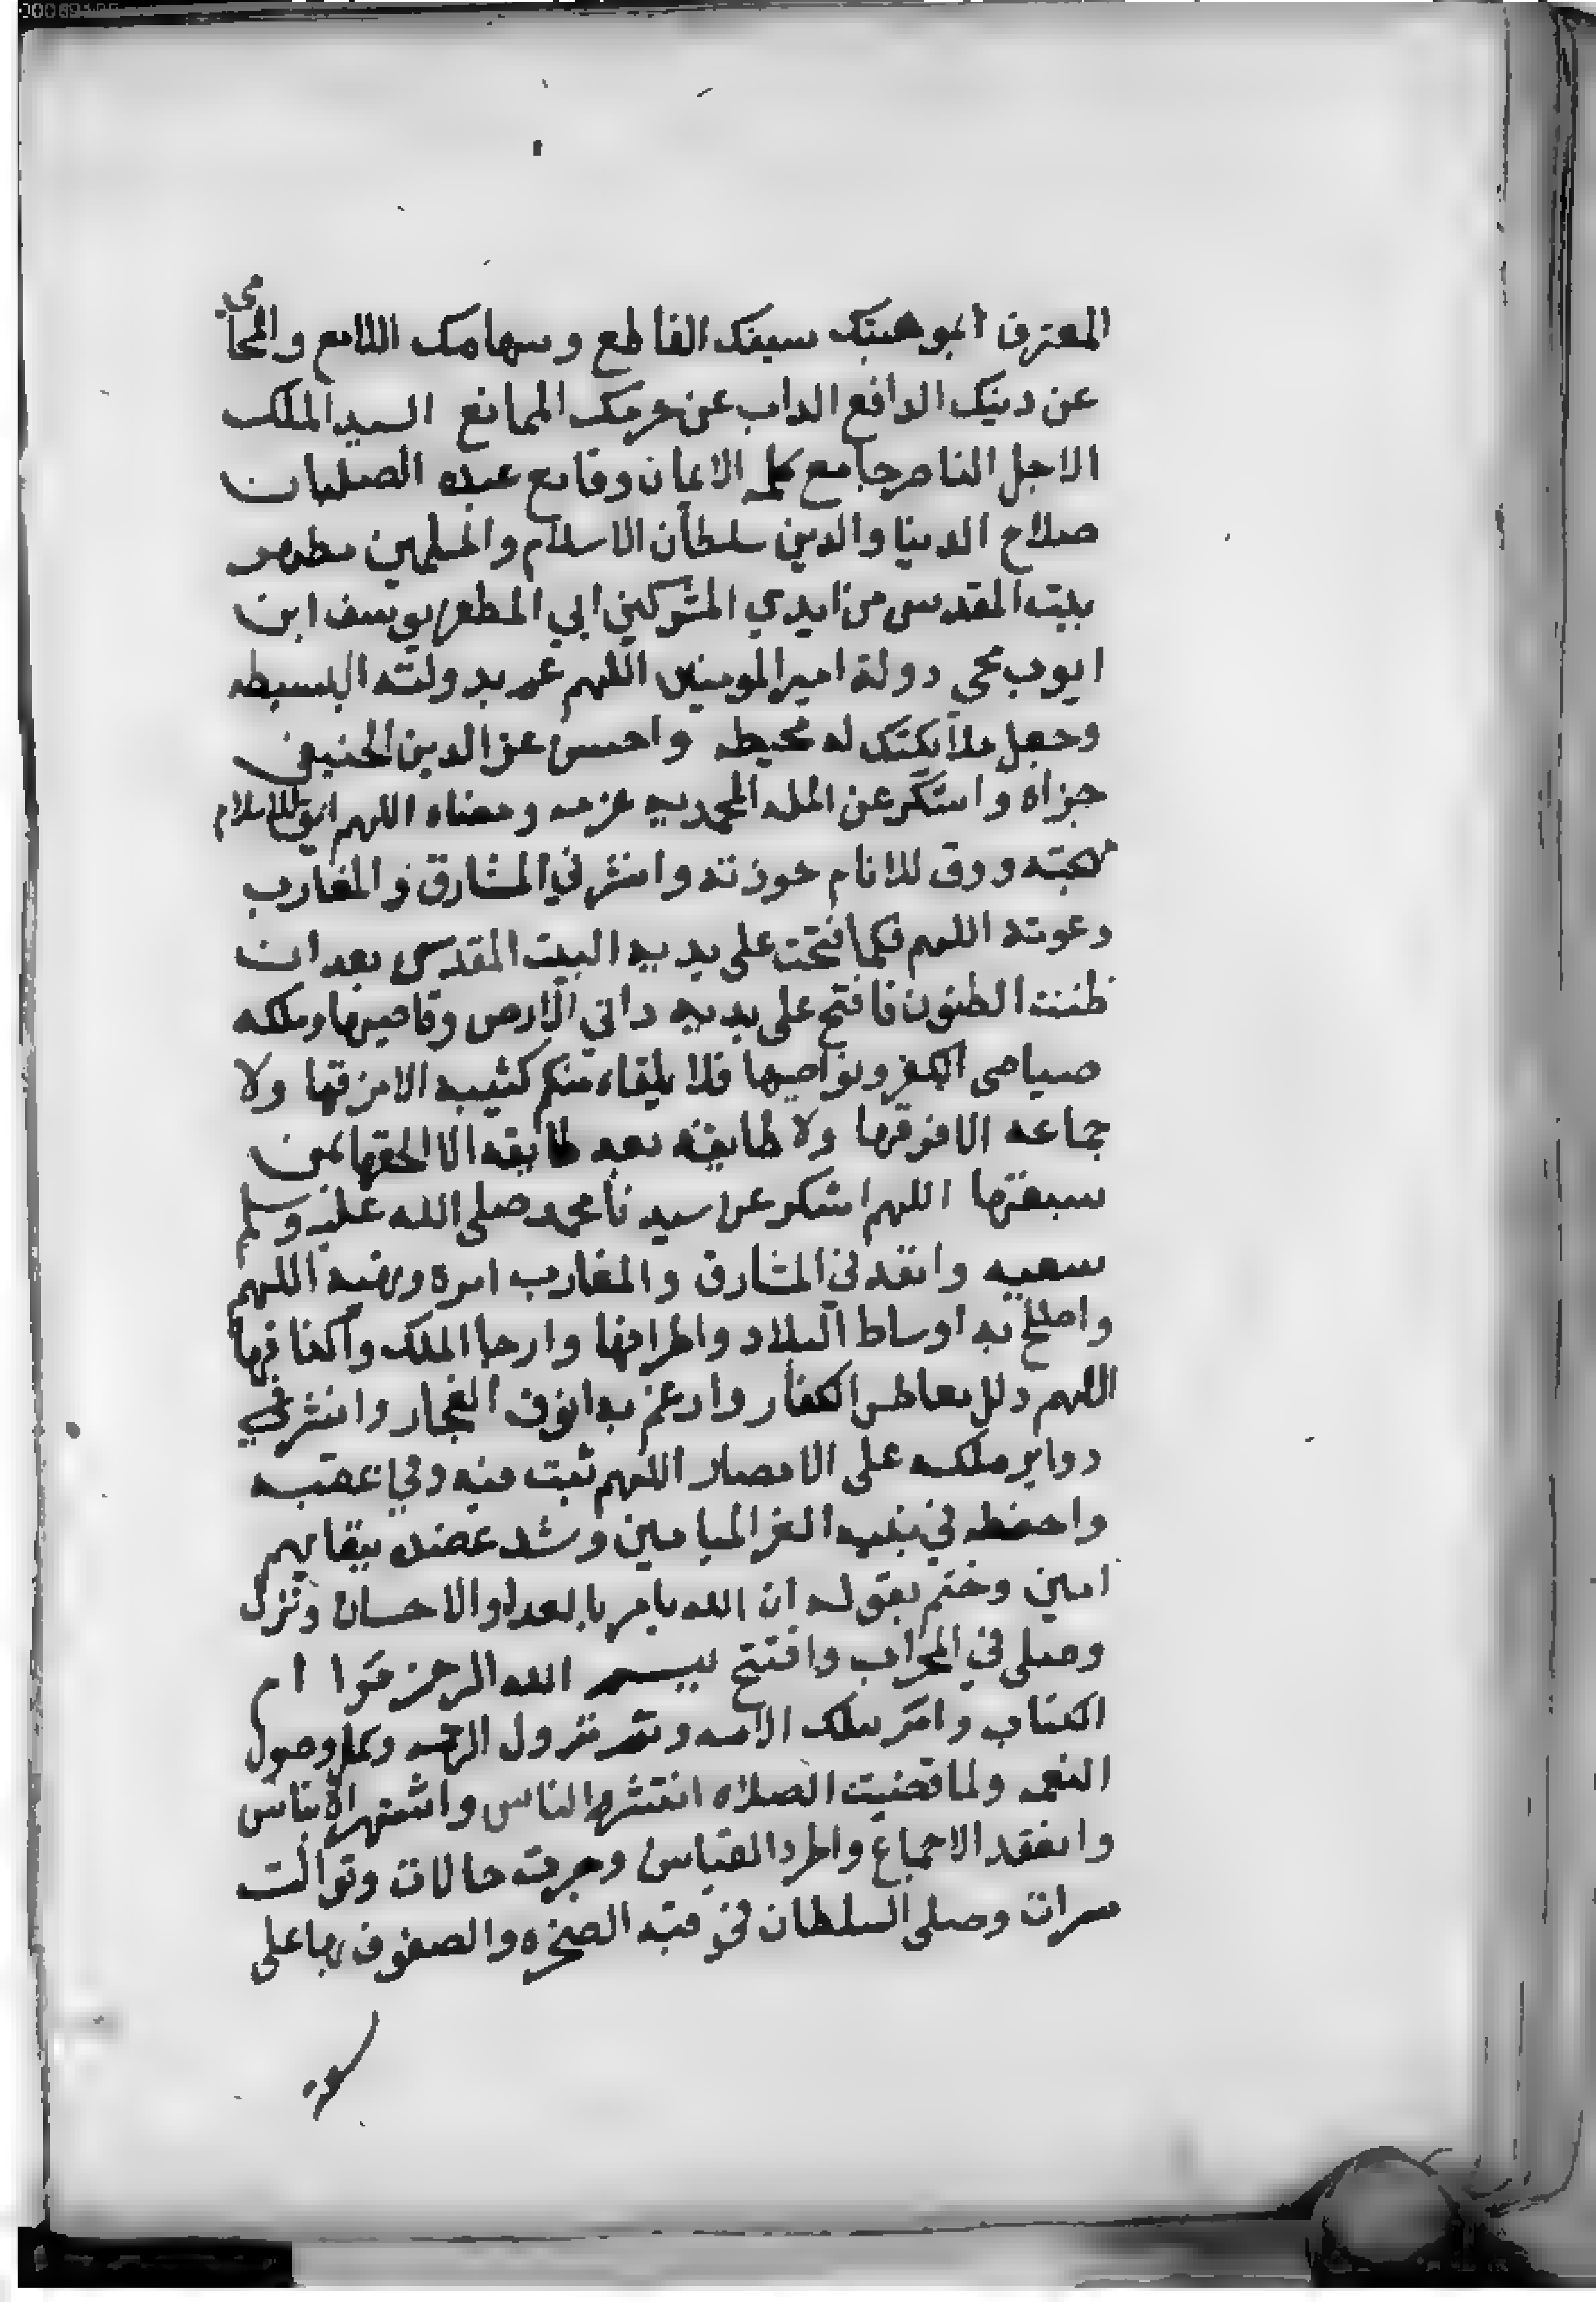 المعترف لموهبتك سيفك القاطع وسهامك اللامع والمحامي
عن دينك الدافع الداب عن حرمك الممانع السيد الملك
الاجل الناصر جامع كلمه الايمان وقامع عبده الصلبان
صلاح الدنيا والدين سلطان الاسلام والمسلمين مطهر
بيت المقدس من ايدي المشركين ابي المظفر يوسف ابن
ايوب محي دولة امير المومنين اللهم عم بدولته البسيطه
وجعل ملايكتك له محيطه واحسن عن الدين الحنيفي
جزاه واشكر عن المله المحمديه عزمه ومضاه اللهم ابق للاسلام
مهجته ووق للانام حوزته وانشر في المشارق والمغارب
دعوته اللهم فكما فتحت على يديه البيت المقدس بعد ان
ظننت الظنون فافتح على يديه داني الارض وقاصيها وملكه
صياصي الكفر ونواصيها فلا يلقاه منهم كثيبه الا مزقها ولا
جماعه الا فرقها ولا طايفه بعد طايفه الا الحقها بمن
سبقتها اللهم اشكر عن سيدنا محمد صلى الله عليه وسلم
سعيه وانفد في المشارق والمغارب امره ونهيه اللهم
واصلح به اوساط البلاد واطرافها وارجا الملك واكنافها
اللهم دلل به معاطس الكفار وارغم به انوف الفجار وانشر في
دواير ملكه على الامصار اللهم ثبت فيه وفي عقبه
واحفظه في بنيه الغر الميامين وشد عضده ببقايهم
امين وختم بقوله ان الله يامر بالعدل والاحسان ونزل
وصلى في المحراب وافتتح ببسم الله الرحمن قرا ام
الكتاب وام بتلك الامه وتم نزول الرحمه وكمل وصول
النعمه ولما قضيت الصلاه انتشر الناس واشتهر الايناس
وانعقد الاجماع واطرد القياس وجرت حالات وتوالت
مسرات وصلى السلطان في قبه الصخره والصفوف بها على